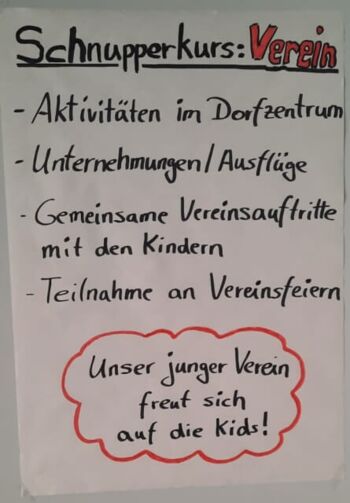 Schnupperkurs: Verein
- Aktivitäten im Dorfzentrum
- Unternehmungen/Ausflüge
- Gemeinsame Vereinsauftritte
mit den Kindern
- Teilnahme an Vereinsfeiern
Unser junger Verein
freut sich
auf die Kids!